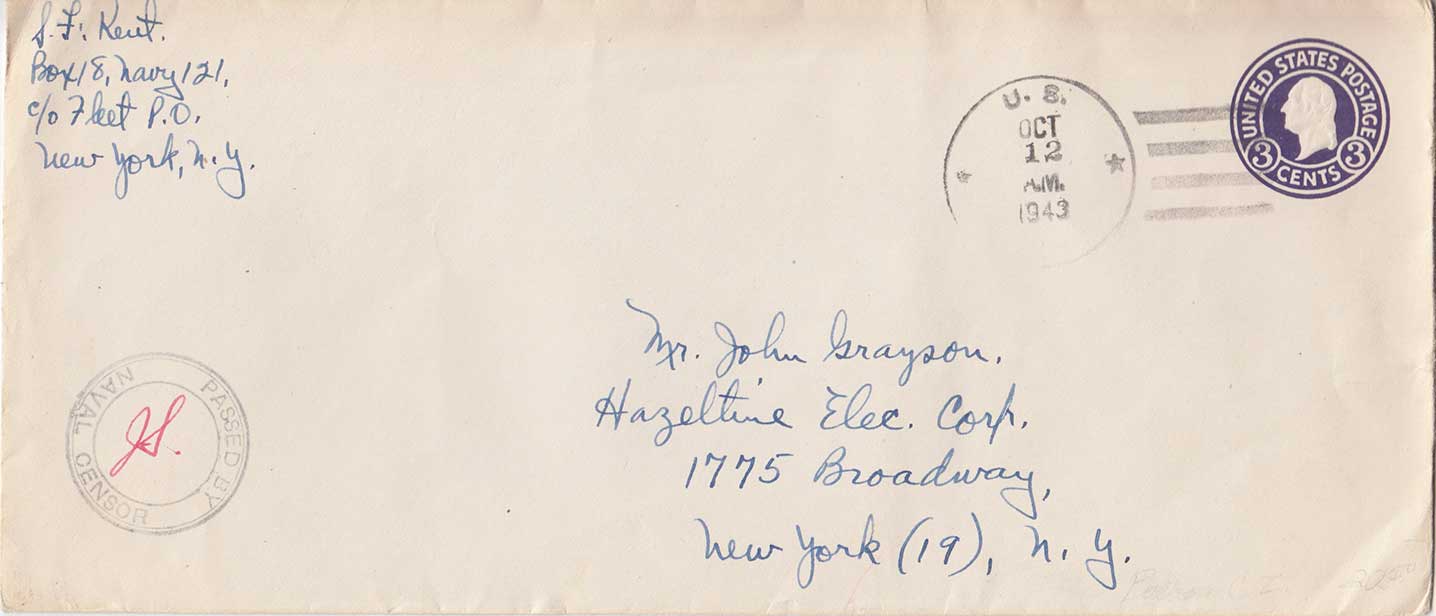 S. F. Kent.
Box 18, Navy 121,
c/o Fleet P.O.
New York, N.Y.
U. S.
OCT
12
A.M.
1943
UNITED STATES POSTAGE
3 CENTS 3
Mr. John Grayson.
Hazeltine Elec. Corp.
1775 Broadway,
New York (19), N. Y.
PASSED BY
NAVAL CENSOR
JS.